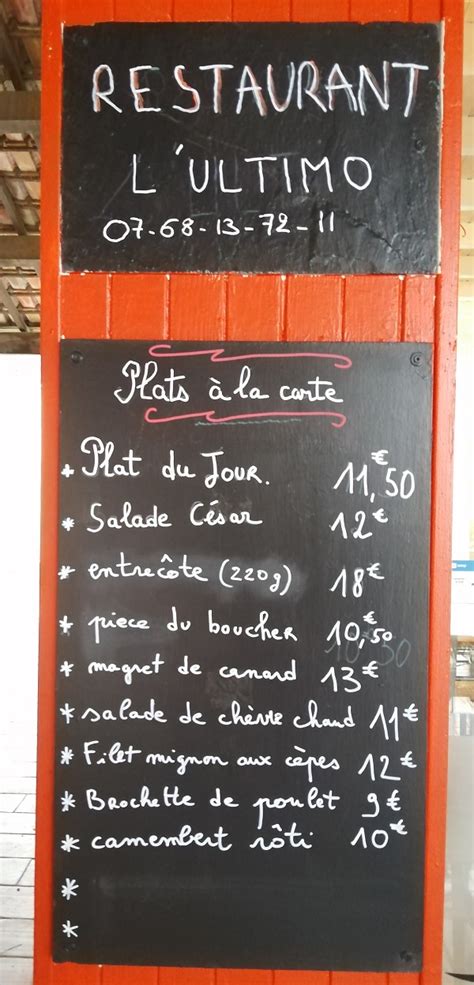 RESTAURANT
L'ULTIMO
07-68-13-72-11
Plats à la carte
* Plat du Jour. 11,50€
* Salade César 12€
* entrecôte (220g) 18€
* piece du boucher 10,50€
* magret de canard 13€
* salade de chèvre chaud 11€
* Filet mignon aux cèpes 12€
* Brochette de poulet 9€
* camembert rôti 10€
*
*